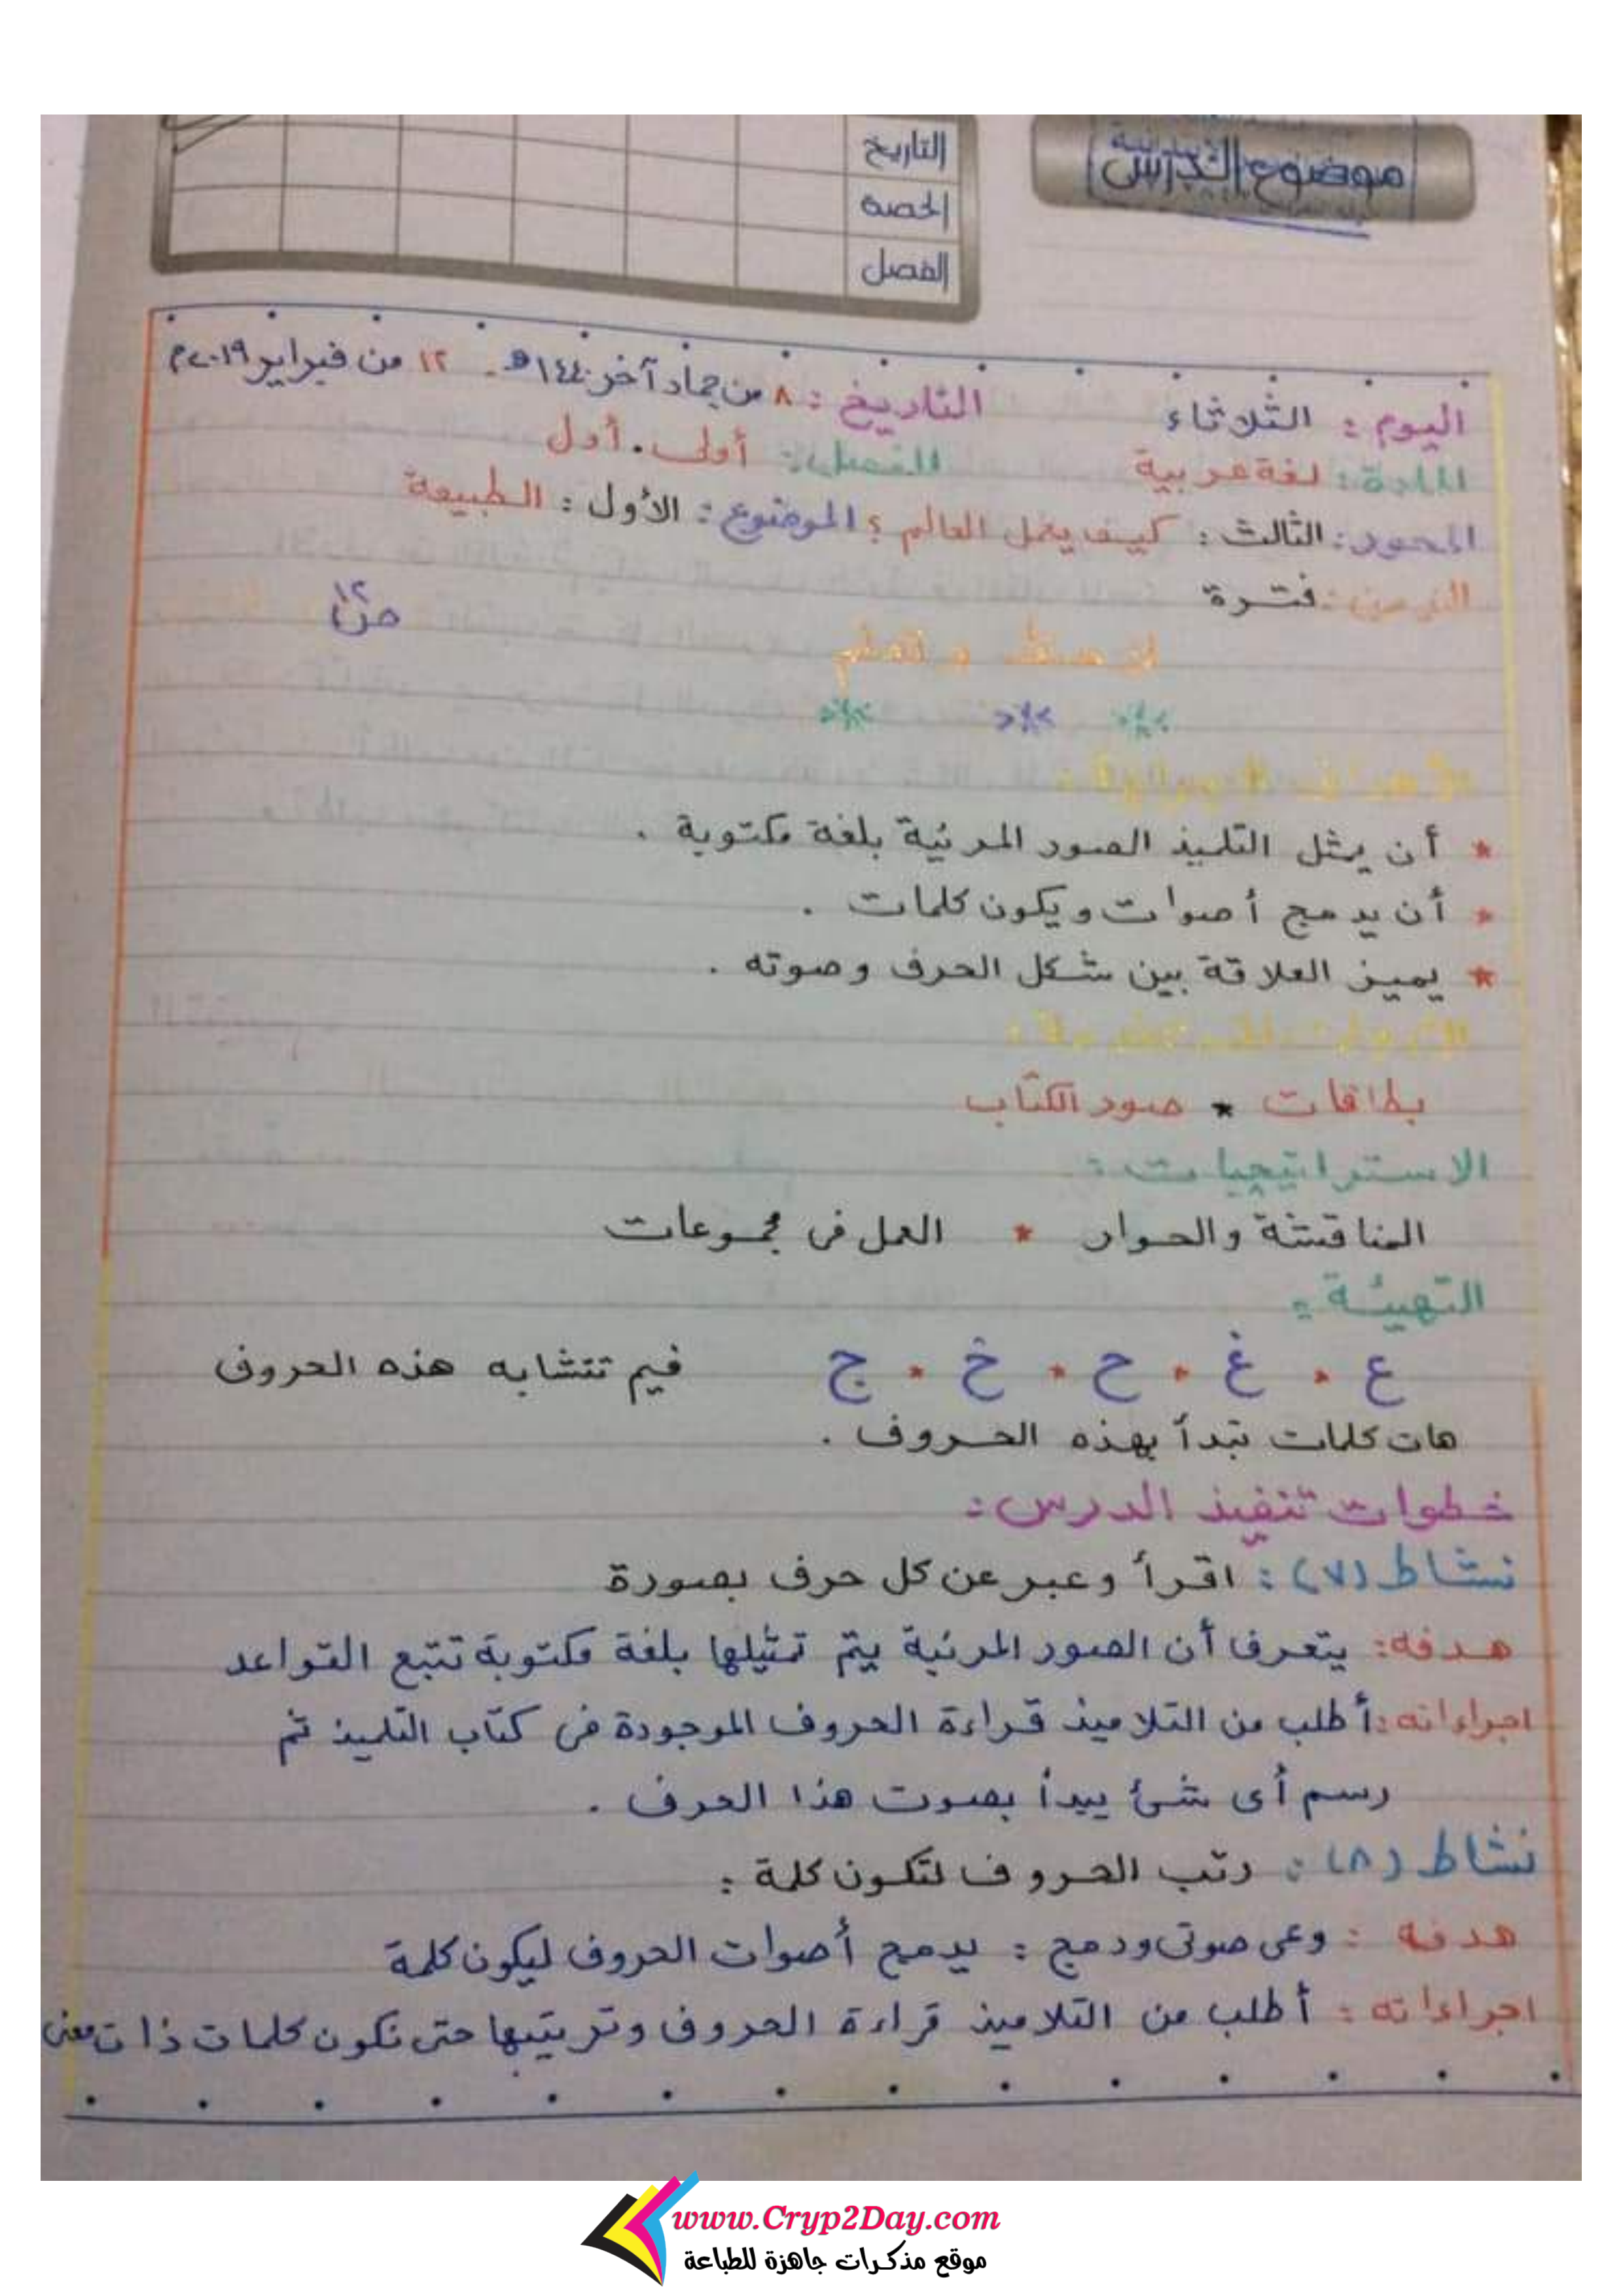 موضوع الدرس
التاريخ
الحصة
الفصل
اليوم : الثلاثاء التاريخ : ٨ من جماد آخر ١٤٤٠هـ - ١٢ من فبراير ٢٠١٩م
المادة : لغة عربية الفصل : أولى . أول
المحور : الثالث : كيف يعمل العالم ؟ الموضوع : الأول : الطبيعة
الزمن : فترة
لاحظ و تعلم
* * *
* أن يمثل التلميذ الصور المرئية بلغة مكتوبة .
* أن يدمج أصوات ويكون كلمات .
* يميز العلاقة بين شكل الحرف وصوته .
الأدوات المستخدمة :
بطاقات * صور الكتاب
الاستراتيجيات :
المناقشة والحوار * العمل فى مجموعات
التهيئة :
ع * غ * ح * خ * ج فيم تتشابه هذه الحروف
هات كلمات تبدأ بهذه الحروف .
خطوات تنفيذ الدرس :
نشاط (٧) : اقرأ وعبر عن كل حرف بصورة
هدفه : يتعرف أن الصور المرئية يتم تمثيلها بلغة مكتوبة تتبع القواعد
اجراءاته : أطلب من التلاميذ قراءة الحروف الموجودة فى كتاب التلميذ ثم
رسم أى شئ يبدأ بصوت هذا الحرف .
نشاط (٨) : رتب الحروف لتكون كلمة :
هدفه : وعى صوتى ودمج : يدمج أصوات الحروف ليكون كلمة
اجراءاته : أطلب من التلاميذ قراءة الحروف وترتيبها حتى تكون كلمات ذات معنى
www.Cryp2Day.com
موقع مذكرات جاهزة للطباعة